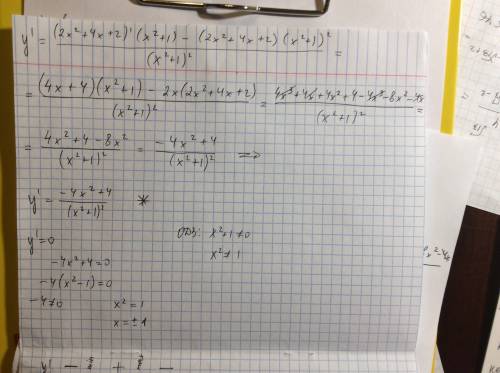 y' = ((2x²+4x+2)'(x²+1) - (2x²+4x+2)(x²+1)²)/(x²+1)² =
= ((4x+4)(x²+1) - 2x(2x²+4x+2))/(x²+1)² = (4x³+4x+4x²+4-4x³-8x²-4x)/(x²+1)² =
= (4x²+4-8x²)/(x²+1)² = (-4x²+4)/(x²+1)² =>
y' = (-4x²+4)/(x²+1)² *
y'=0 ОДЗ: x²+1≠0
-4x²+4=0 x²≠1
-4(x²-1)=0
-4≠0 x²=1
x=±1
y' - + -